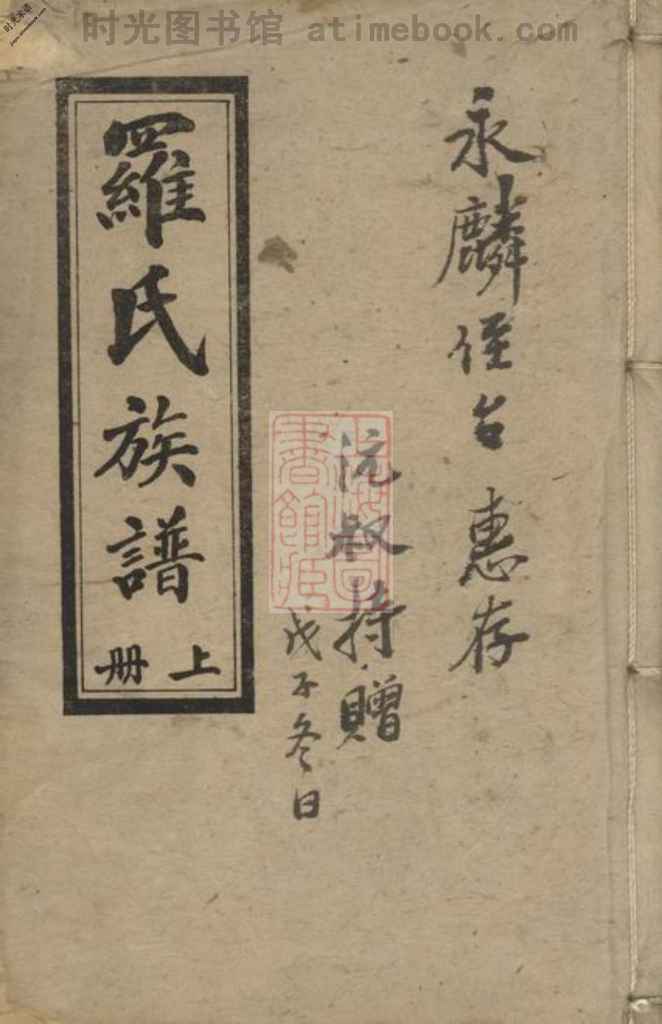 时光图书馆 atimebook.com
永麟侄台 惠存
沅叔持贈
戊子冬日
羅氏族譜
上册